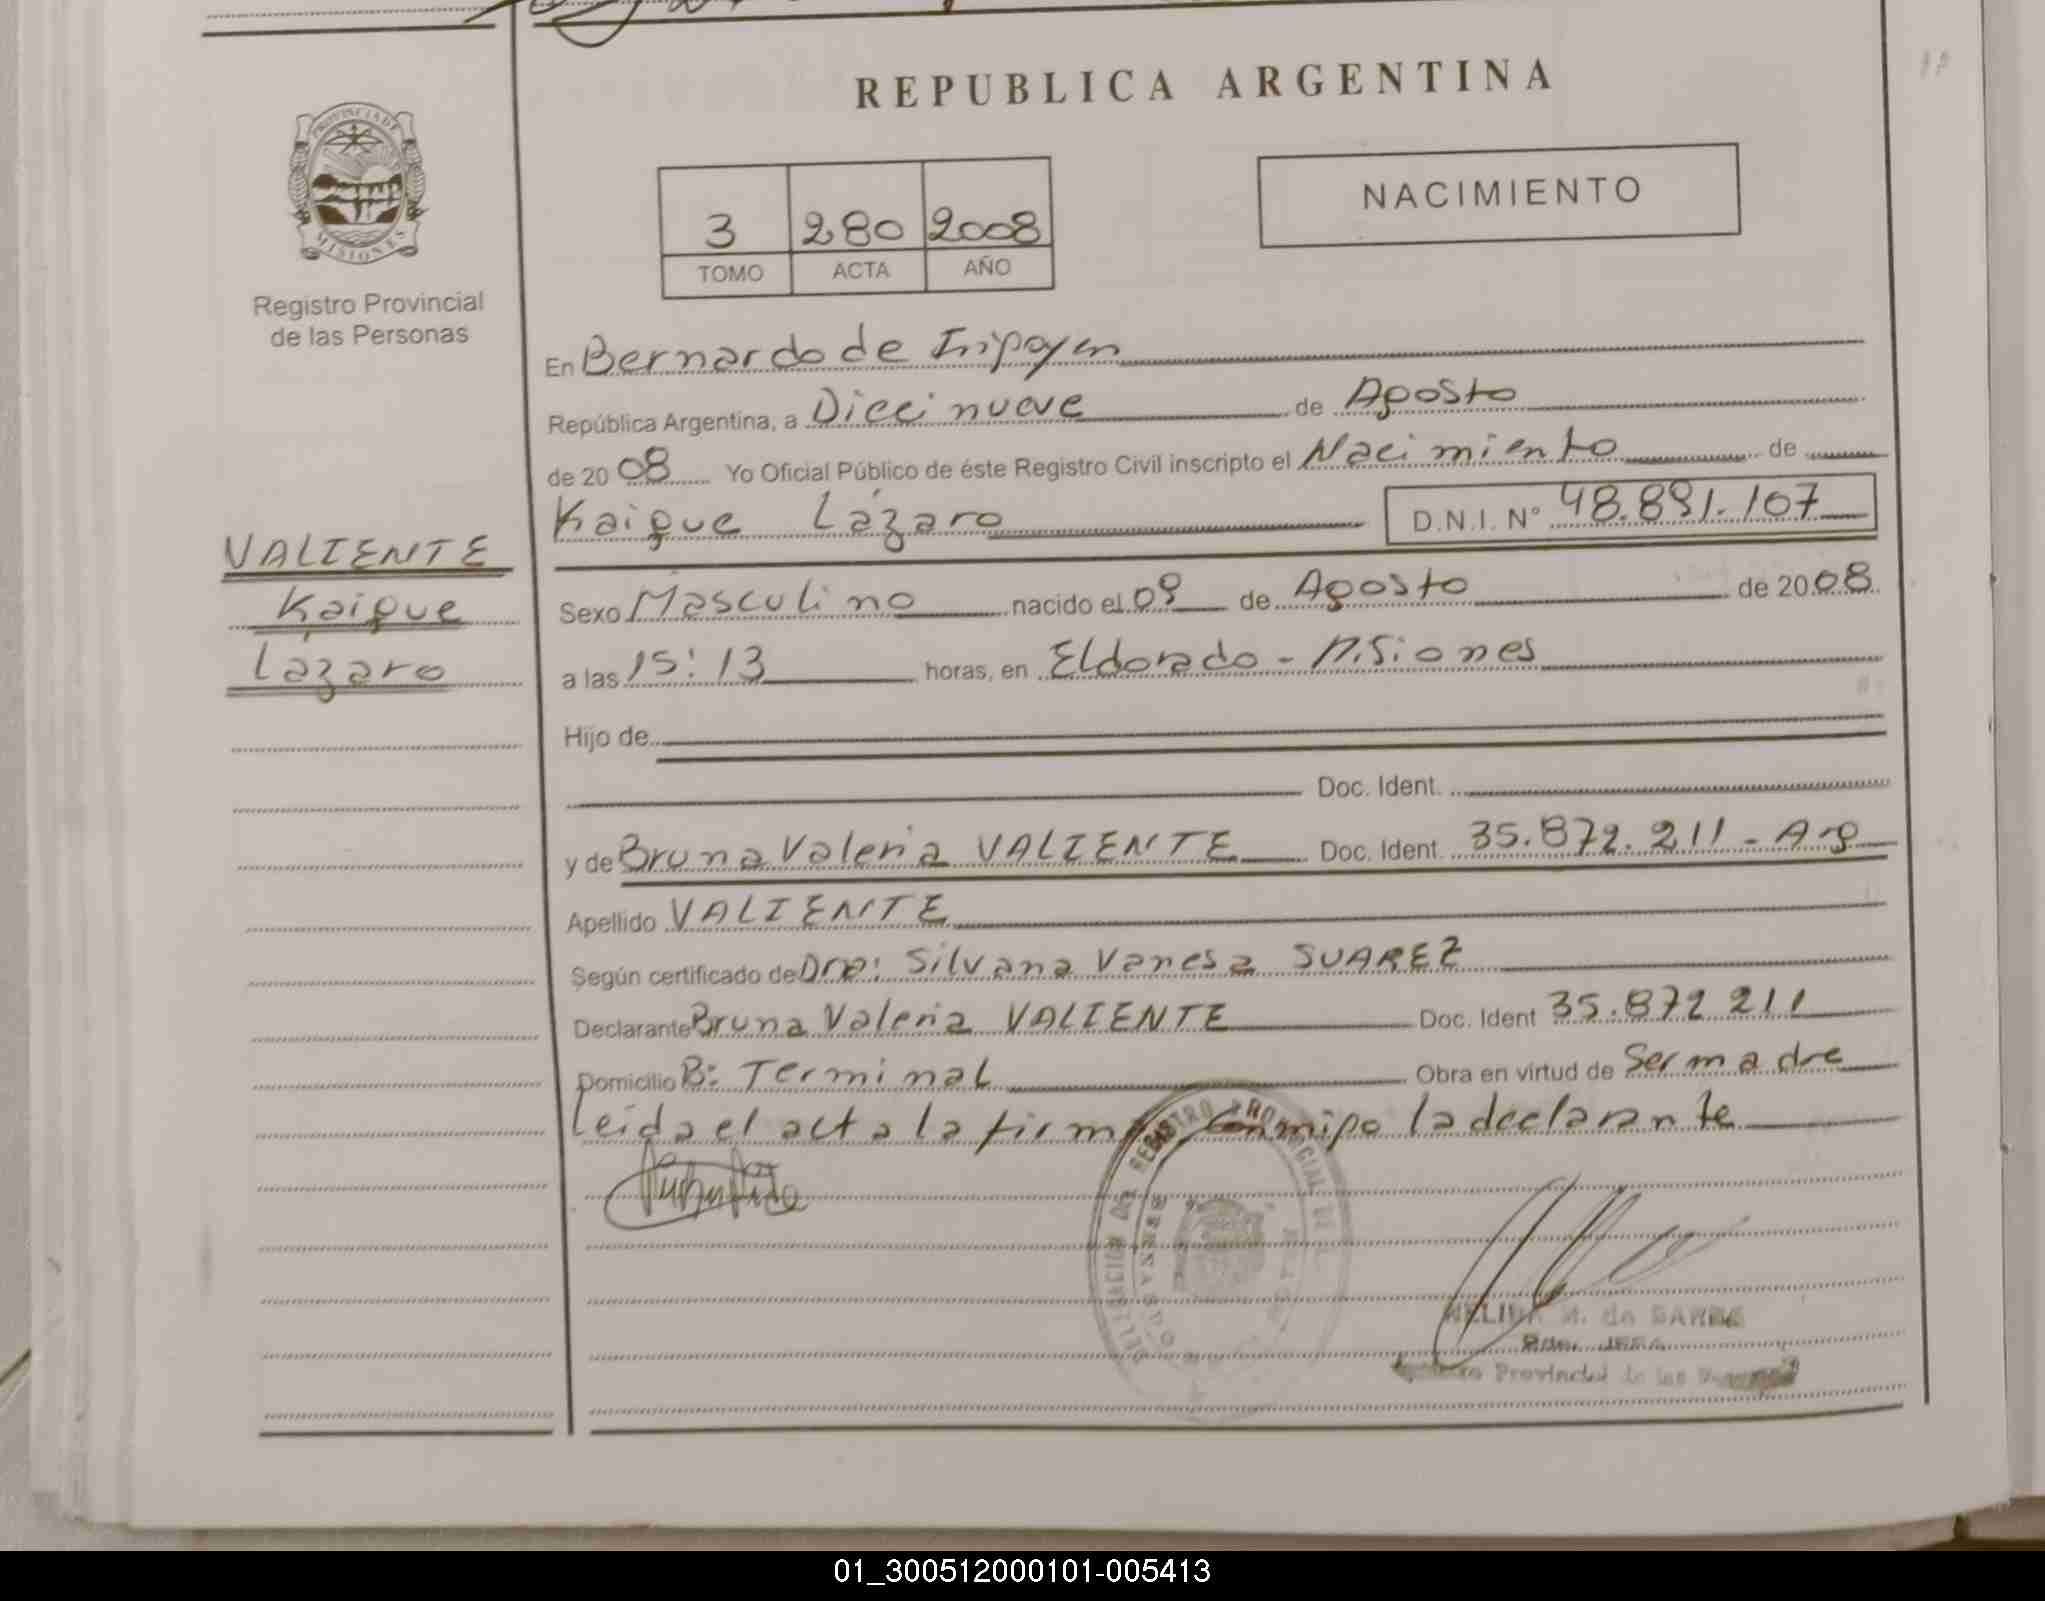 REPUBLICA ARGENTINA
PROVINCIA DE
MISIONES
Registro Provincial
de las Personas
NACIMIENTO
3 280 2008
TOMO ACTA AÑO
En Bernardo de Iripoyen
República Argentina, a Diecinueve de Agosto
de 2008 Yo Oficial Público de éste Registro Civil inscripto el Nacimiento de
Kaique Lázaro D.N.I. Nº 48.891.107
VALIENTE
Kaique
Lázaro
Sexo Masculino nacido el 09 de Agosto de 2008
a las 15:13 horas, en Eldorado - Misiones
Hijo de
Doc. Ident.
y de Bruna Valeria VALIENTE Doc. Ident. 35.872.211 - Arg
Apellido VALIENTE
Según certificado de Dra: Silvana Vanesa SUAREZ
Declarante Bruna Valeria VALIENTE Doc. Ident 35.872 211
Domicilio B: Terminal Obra en virtud de Ser madre
Leida el acta la firma conmigo la declarante
REGISTRO PROVINCIAL DE
M. de
Provincial de las
01_300512000101-005413